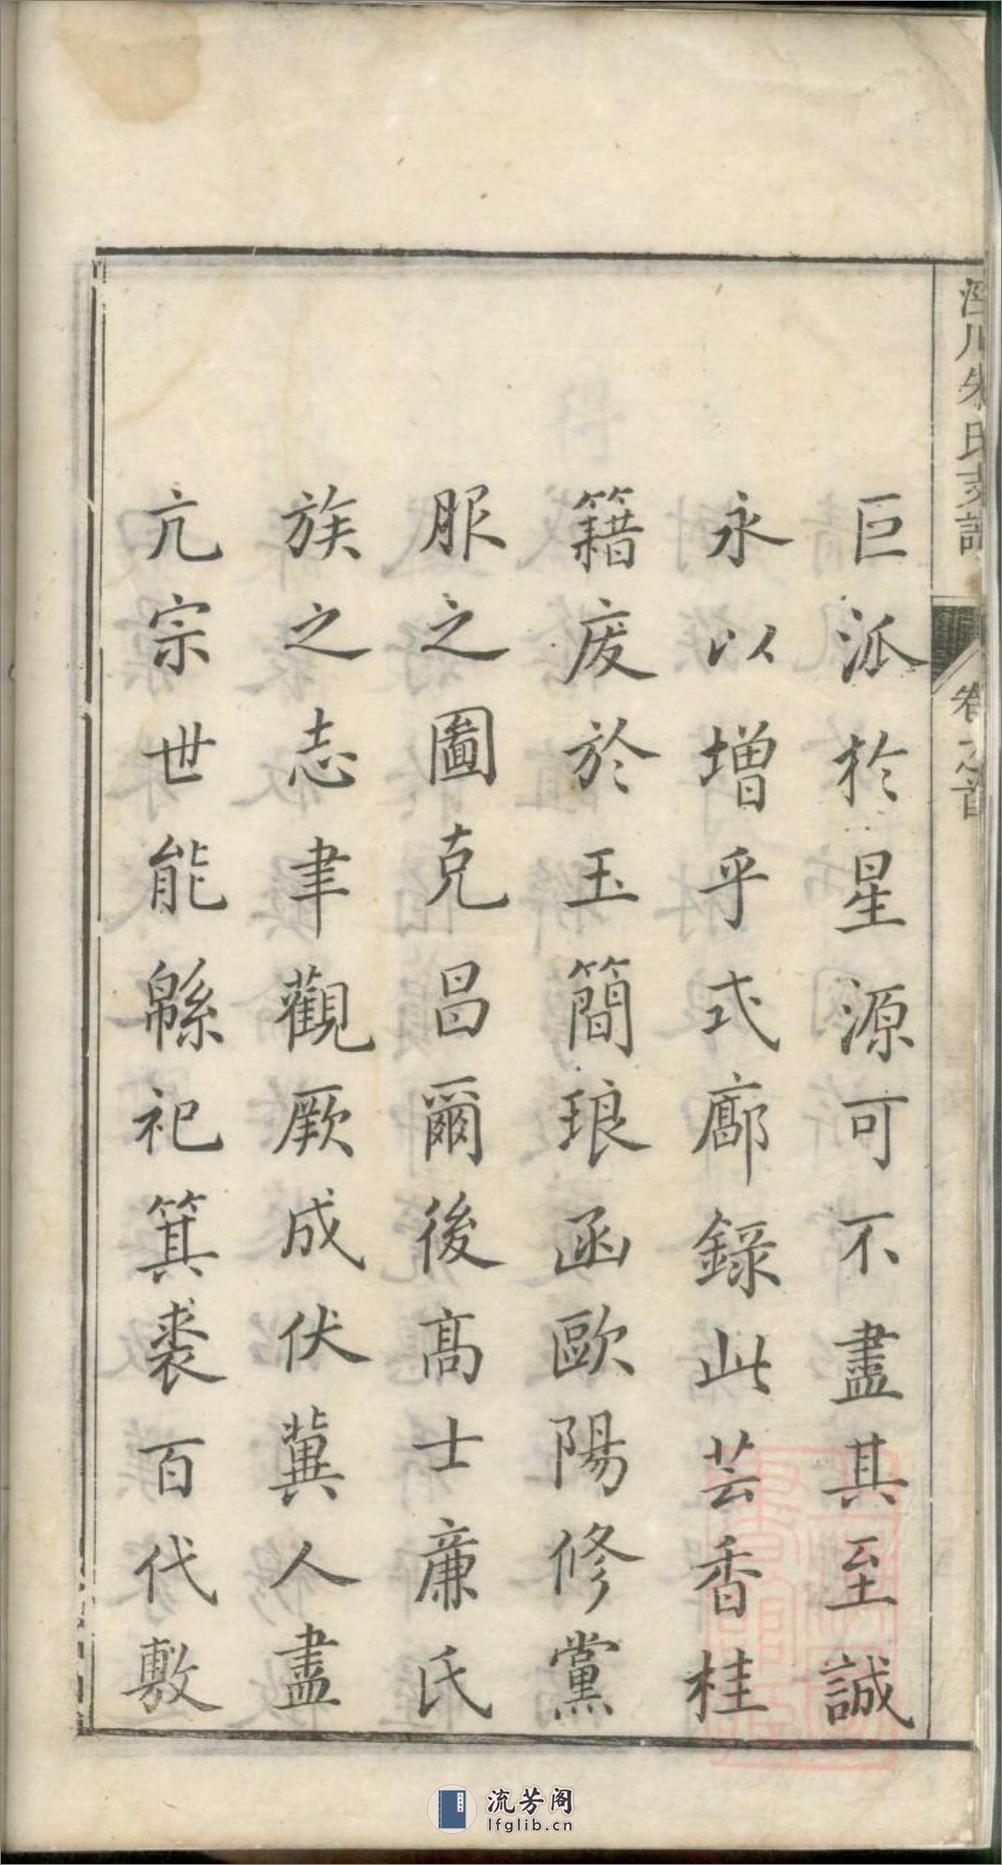 涇川朱氏支譜
卷之首
巨派於星源可不盡其至誠
永以增乎式廓錄此芸香桂
籍庋於玉簡琅函歐陽修黨
服之圖克昌爾後高士廉氏
族之志聿觀厥成伏冀人盡
亢宗世能緜祀箕裘百代敷
流芳阁
lfglib.cn